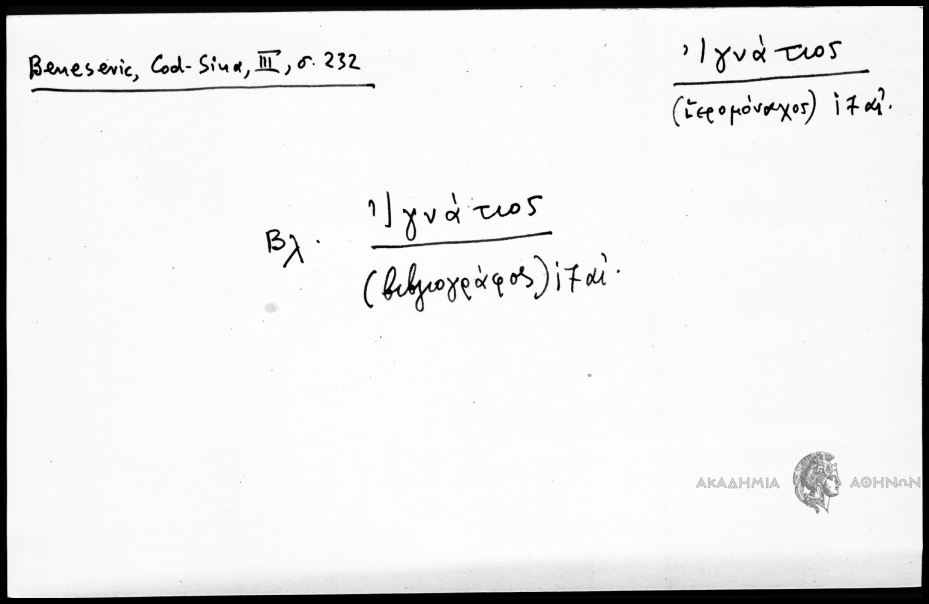 Benesevic, Cod-Sina, III, σ. 232
Ἰγνάτιος
(ἱερομόναχος) ι7 αἰ.
Βλ. Ἰγνάτιος
(βιβλιογράφος) ι7 αἰ.
ΑΚΑΔΗΜΙΑ ΑΘΗΝΩΝ